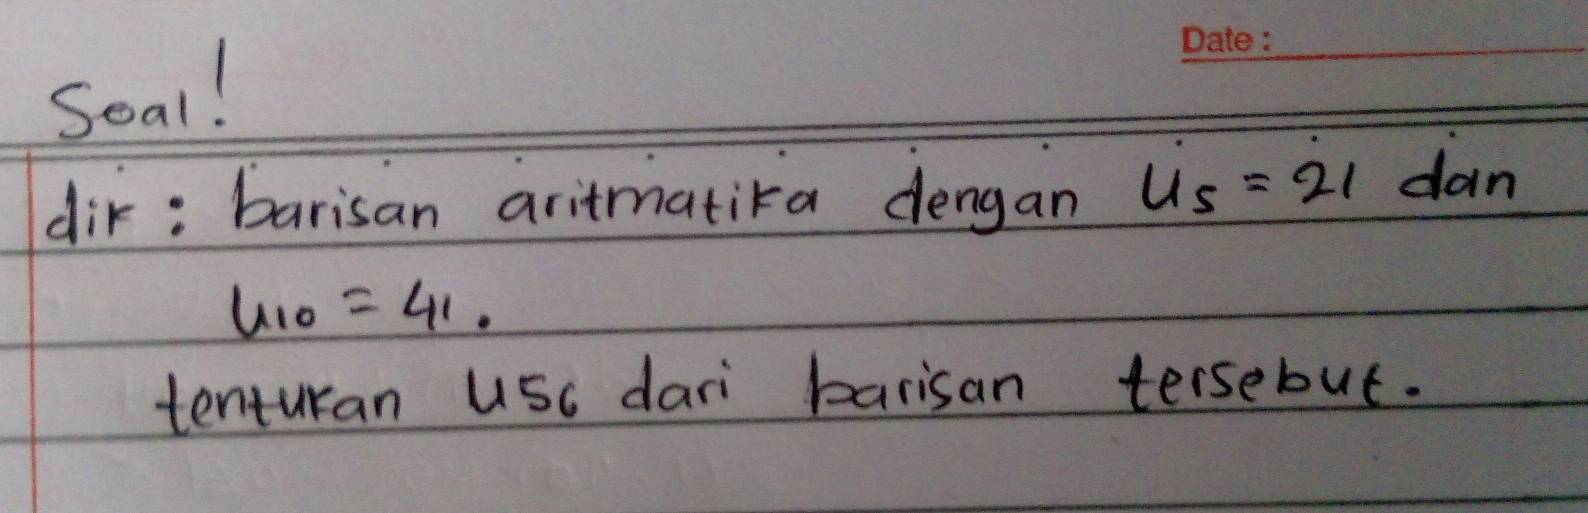 Date :
Soal!
dik : barisan aritmatika dengan U5 = 21 dan
U10 = 41.
tentukan U56 dari barisan tersebut.